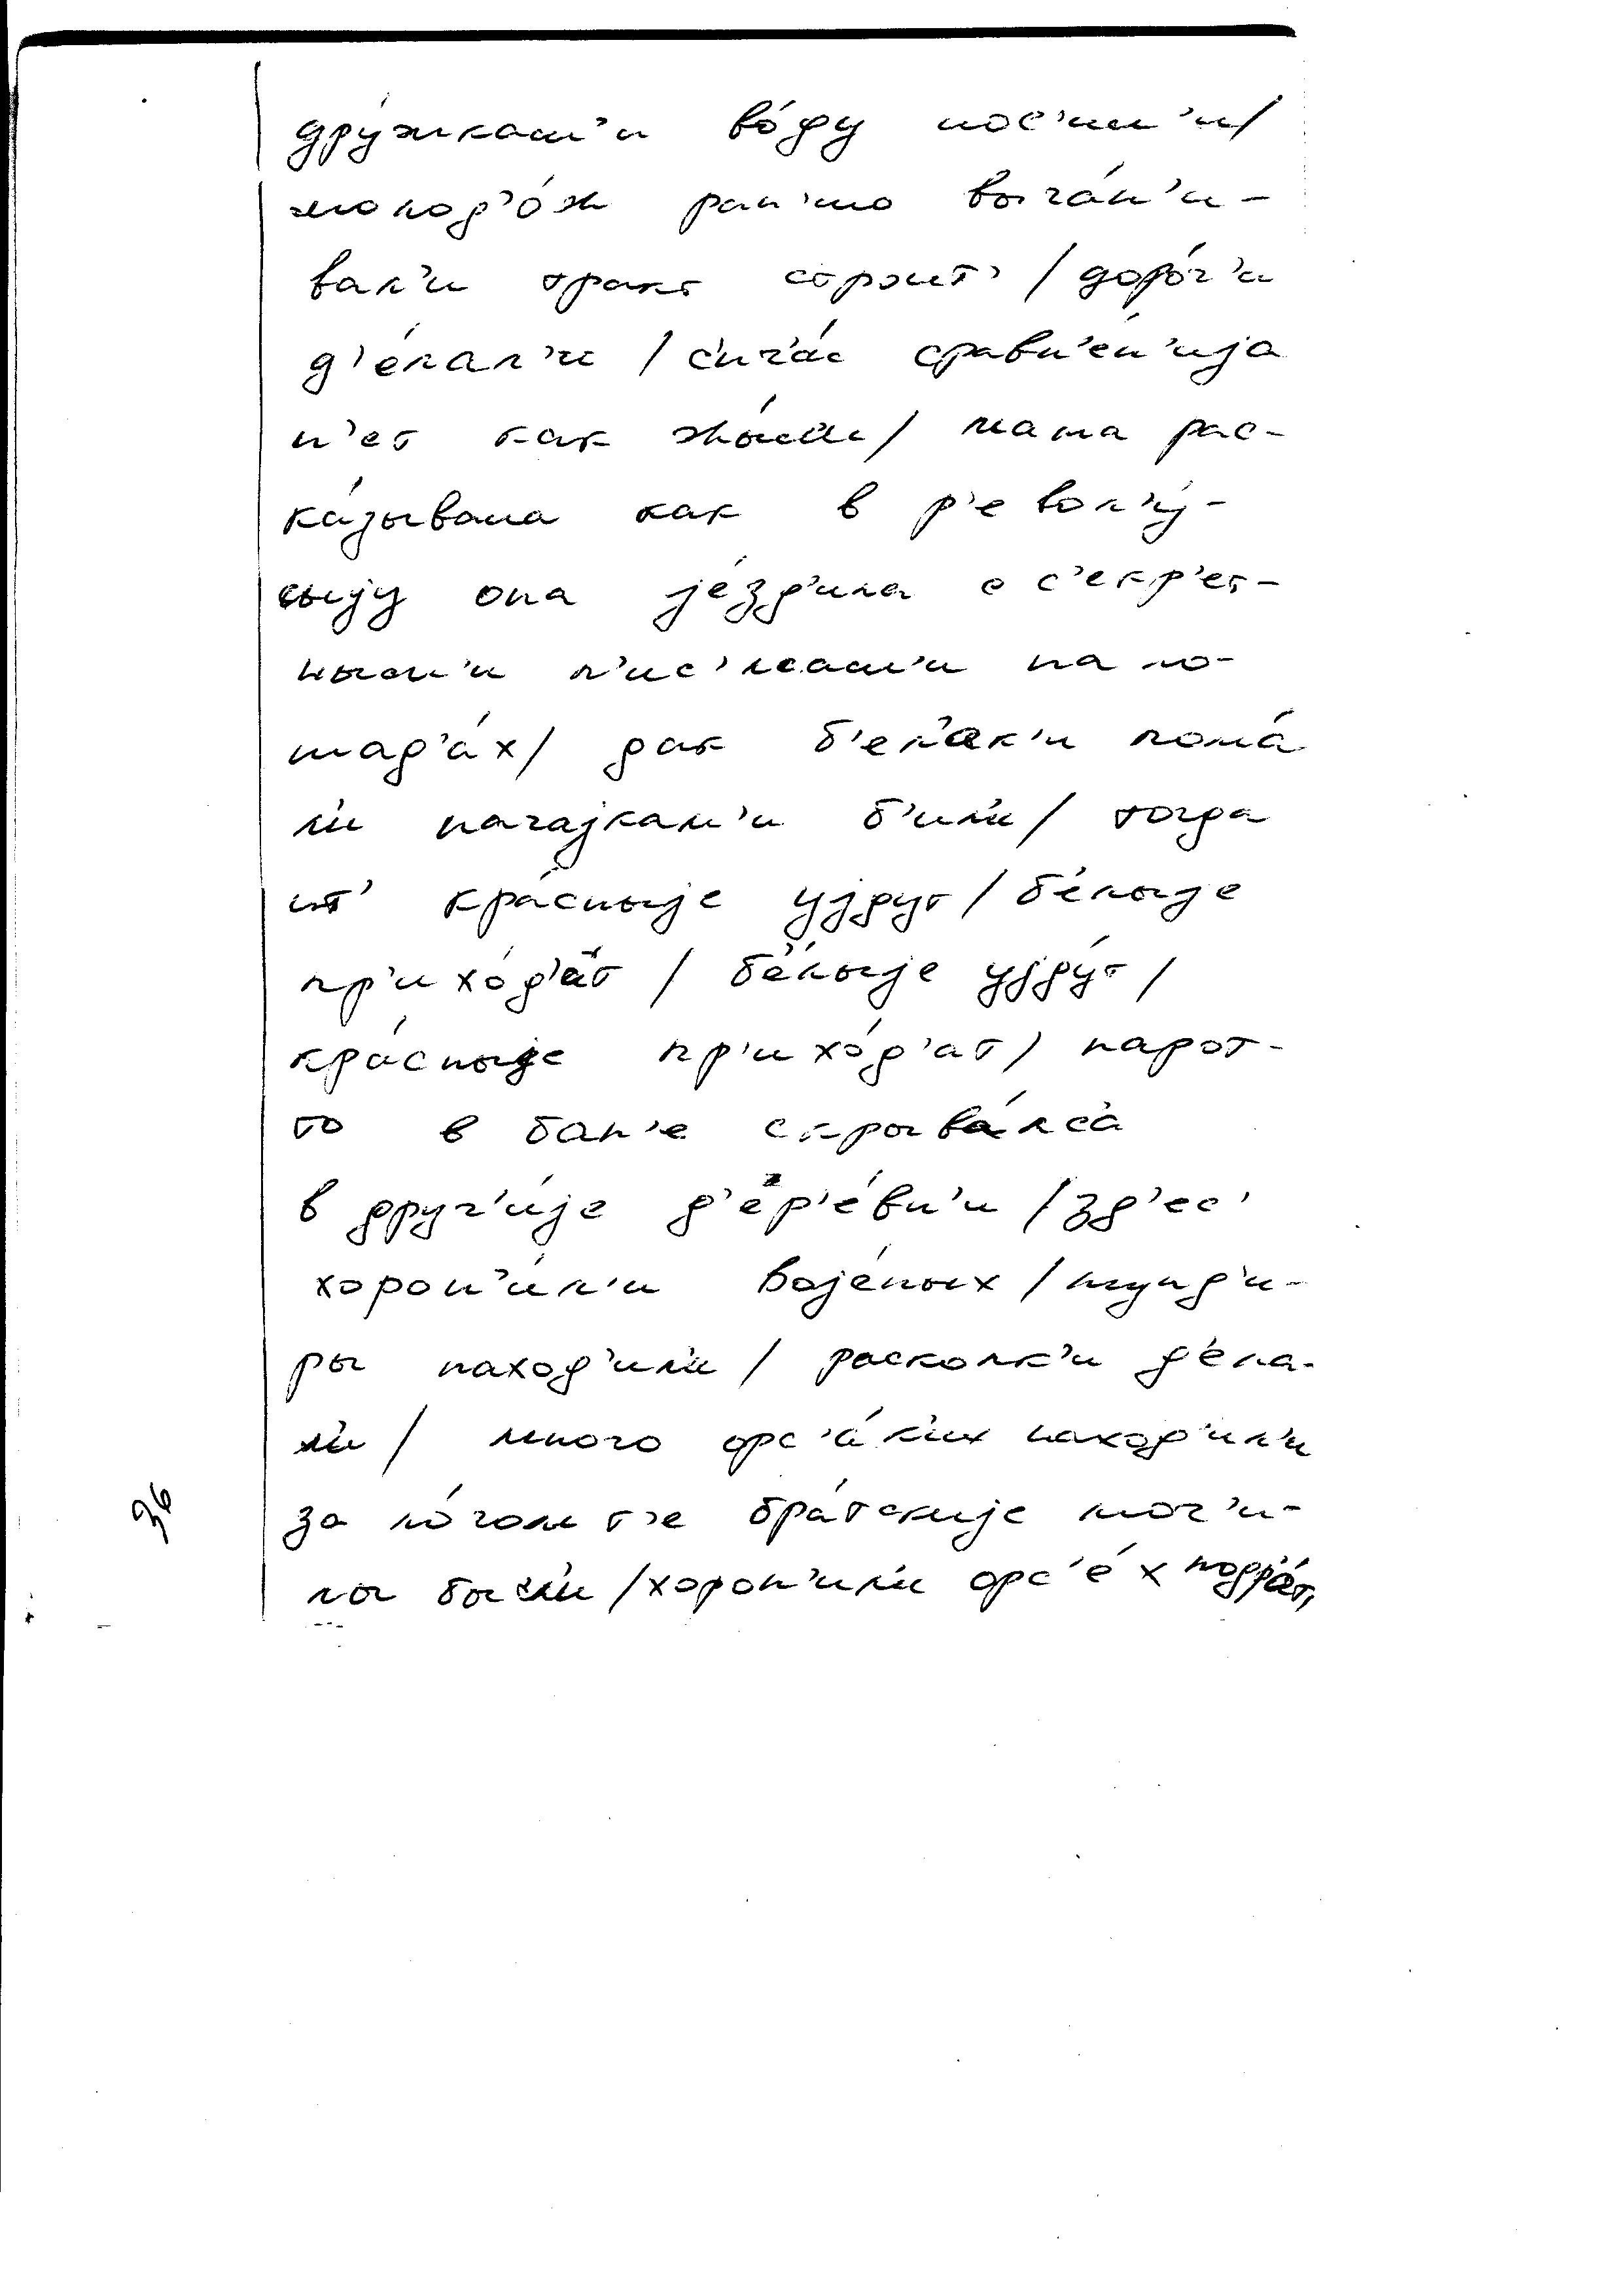 дру́жкам'и во́ду нос'ил'и/
молод'о́ж ран'шо выга́н'и-
вал'и тракт строит' / доро́г'и
д'е́лал'и / с'ич'а́с сравн'е́н'ија
н'ет как жы́ли/ мама рас-
ка́зывала как в р'евол'у́-
цыју она је́зд'ила с с'екр'ет-
ными'и п'ис'мам'и на ло-
шад'а́х/ дак б'ел'ак'и пома́
ли нагајкам'и б'ил'и/ тогда
ит' кра́сныје ујдут / б'е́лыје
пр'ихо́д'ат / б'е́лыје ујду́т /
кра́сныје пр'ихо́д'ат/ народ-
то в бан'е скрыва́лс'а
в друг'и́је д'ер'е́вн'и / зд'ес'
хорон'и́л'и воје́ных / мунд'и-
ры наход'ил'и / расколк'и д'е́ла-
л'и / много орс'а́ких наход'ил'и
за ло́гом т'е бра́тскије мог'и-
лы был'и /хорон'ил'и орс'е́х подр'а́т,
36